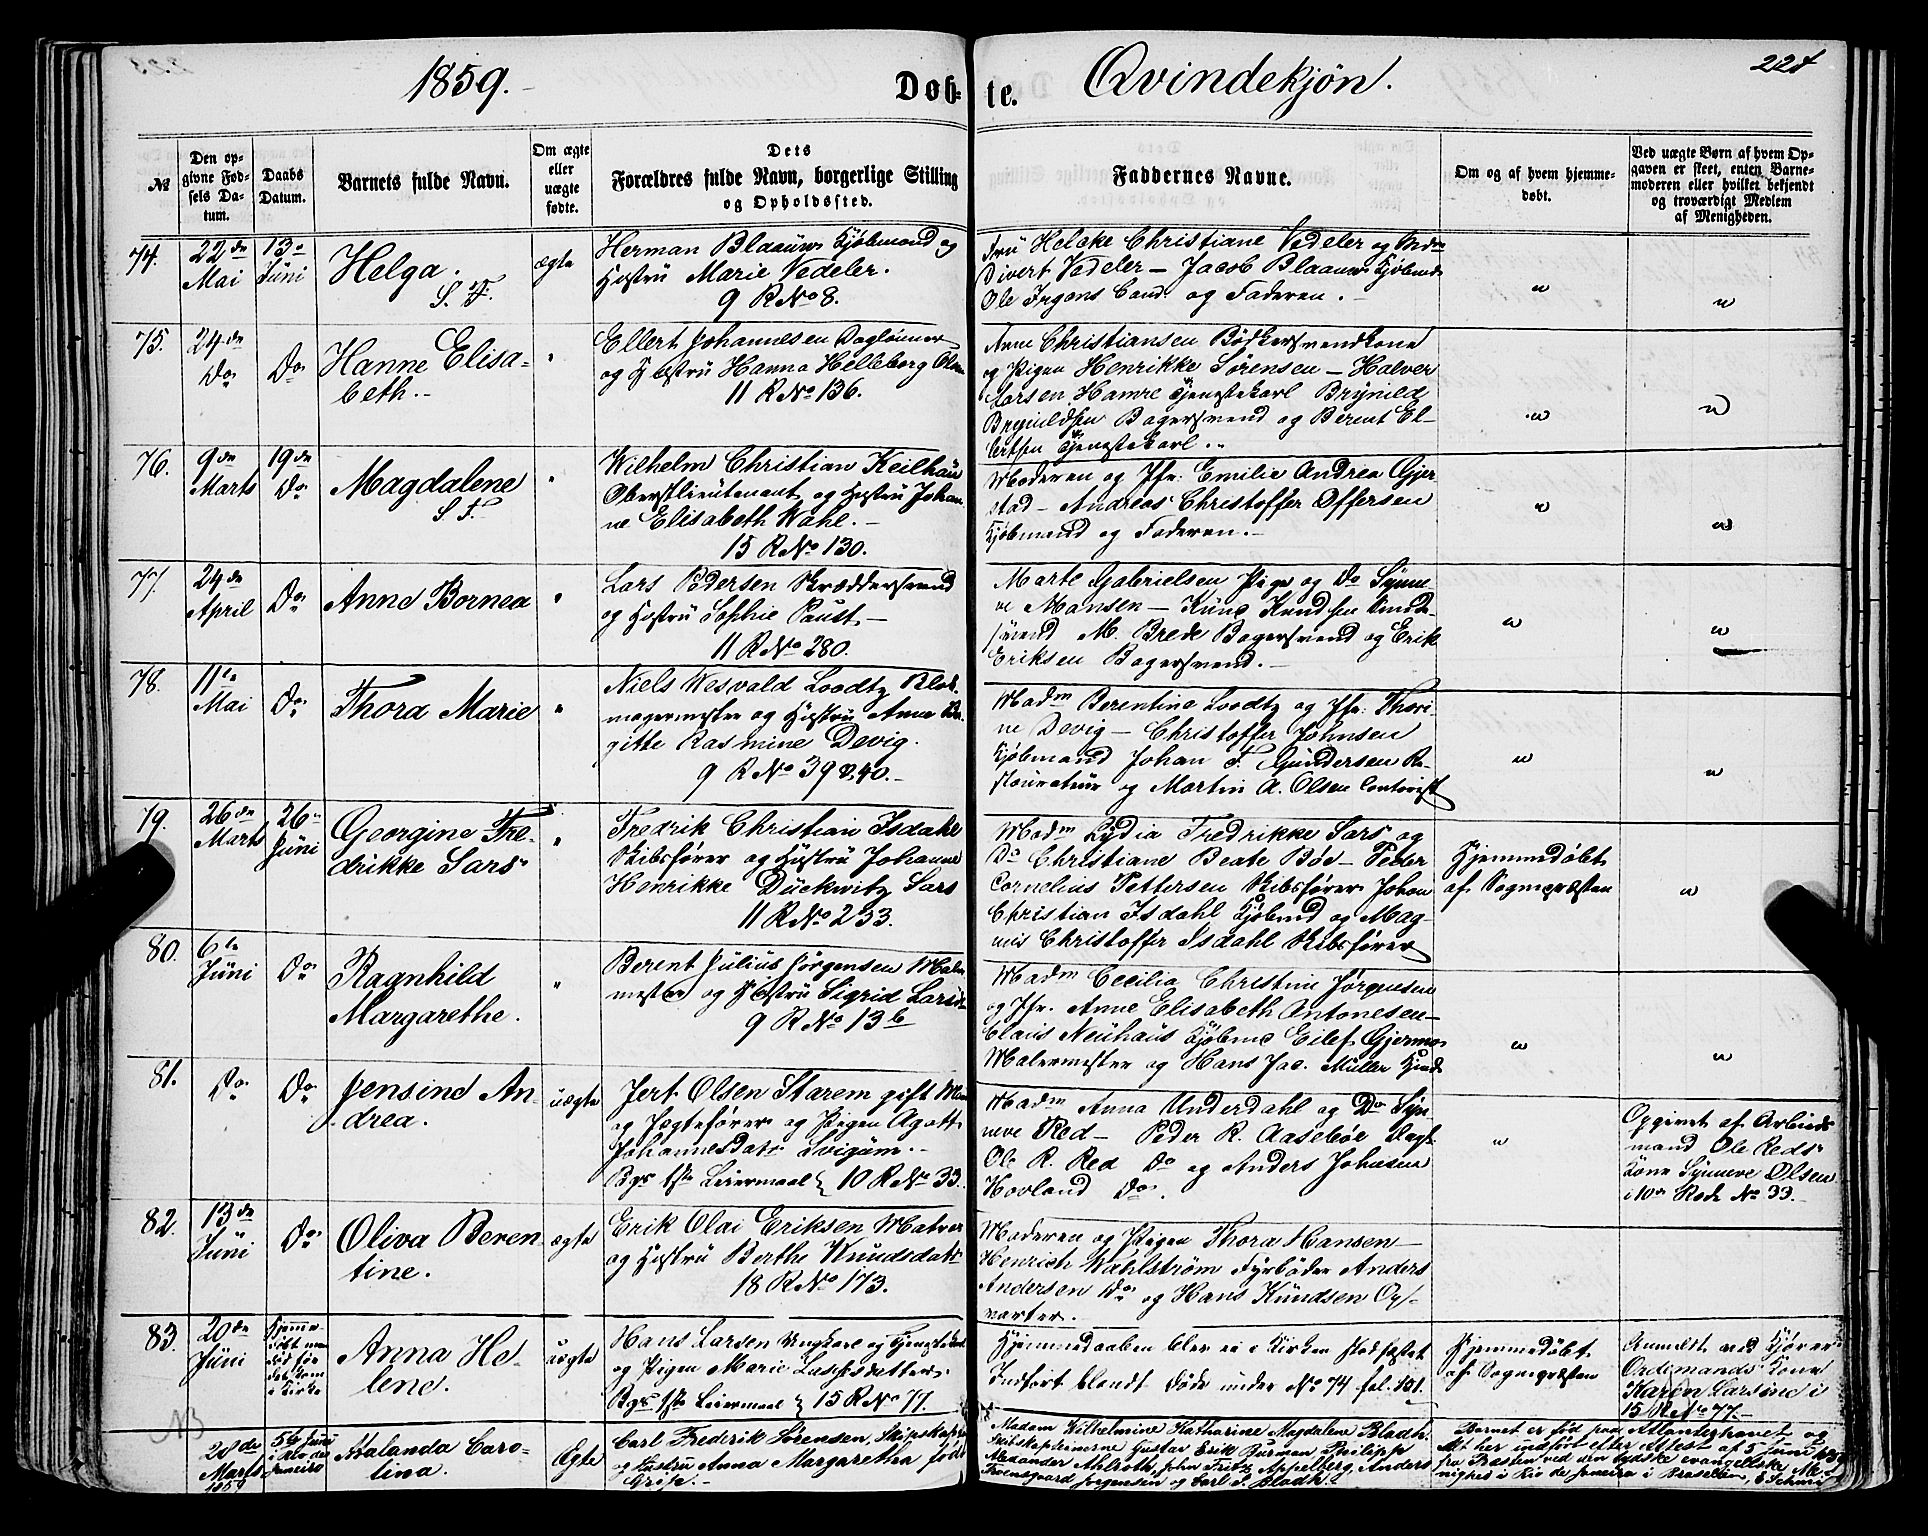 1859. Døb- te. Qvindekjön. 221
№
Den opgivne Fødsels Datum.
Daabs Datum.
Barnets fulde Navn.
Om ægte eller uægte fødte.
Dets Forældres fulde Navn, borgerlige Stilling og Opholdssted.
Faddernes Navne.
Om og af hvem hjemmedøbt.
Ved uægte Børn af hvem Opgaven er skeet, enten Barnemoderen eller hvilket bekjendt og troværdigt Medlem af Menigheden.
74. 22de Mai
13de Juni
Helga.
S. F.
ægte
Herman Blaauw Kjöbmand og
Hustru Marie Vedeler.
9 R No 8.
Fru Helcke Christiane Vedeler og
Divert Vedeler – Jacob Blaauw Kjöbmd
Ole Irgens Cand. og Faderen. –
75. 24de Do
Do
Hanne Elisa-
beth. –
Ellert Johannesen Daglönner
og Hustru Hanna Helleborg
11 R No 136.
Anne Christiansen Bödkersvendkone
og Pigen Henrikke Sörensen – Halver
Larsen Hamre Tjenestekarl Brynild
Brynildsen Bagersvend og Berent El-
lertsen Tjenestekarl. –
76. 9de Marts
19de Do
Magdalene
S. F.
Wilhelm Christian Keilhau
Oberstlieutenant og Hustru Johan-
ne Elisabeth Wahl. –
15 R No 130.
Moderen og Jfr. Emilie Andrea Gjer-
stad – Andreas Christoffer Offersen
Kjöbmand og Faderen. –
77. 24de April
Do
Anne Bornea
Lars Pedersen Skræddersvend
og Hustru Sophie Paust –
11 R No 280.
Marte Gabrielsen Pige og Do Synne-
ve Monsen – Knud Knudsen
svend M. Brede Bagersvend og Erik
Eriksen Bagersvend. –
78. 11te Mai
Do
Thora Marie
Niels Wesvald Loodtz Blok-
magermester og Hustru Anne Bir-
gitte Rasmine Devig.
9 R No 39 & 40. –
Madm Berentine Loodtz og Jfr. Thori-
ne Devig – Christoffer Johnsen
Kjöbmand Johan F. Gundersen Re-
stourateur og Martin A. Olsen Contorist
79. 26de Marts
26de Juni
Georgine Fre-
drikke Sars
Fredrik Christian Isdahl
Skibsförer og Hustru Johanne
Henrikke Dückwitz Sars
11 R No 233.
Madm Lydia Fredrikke Sars og
Do Christiane Beate Böe – Peder
Cornelius Pettersen Skibsförer Johan
Christian Isdahl Kjöbmd og Mag-
nus Christoffer Isdahl Skibsförer
Hjemmedöbt
af Sognepræsten
80. 6te Juni
Do
Ragnhild
Margarethe.
Berent Julius Jörgensen Maler-
mester og Hustru Sigrid Larsen
9 R No 13b
Madm Cecilia Christine Jörgensen
og Jfr. Anne Elisabeth Antonesen –
Claus Neuhaus Kjöbmd Eilef Gjermo
Malermester og Hans Jac. Müller
81. Do
Do
Jensine An-
drea.
uægte
Jert Olsen Starem gift Mand
og Jægtefører og Pigen Agatte
Johannesdatr Svigum. –
Bgs 1ste Leiermaal } 10 R No 33.
Madm Anna Underdahl og Do Syn-
neve Red – Peder R. Aaseböe
Ole R. Red Do og Anders Johnsen
Hovland Do.
Opgivet af Arbeids-
mand Ole Reds
Kone Synneve Olsen
i 10de Rode No 33. –
82. 13de Juni
Do
Oliva Beren-
tine.
ægte
Erik Olai Eriksen Matros
og Hustru Berthe Knudsdatr
18 R No 173.
Moderen og Pigen Thora Hansen –
Henrich Wahlström Fyrböder Anders
Andersen Do og Hans Knudsen Op-
varter.
83. 20de Juni
Hjemme-
döbt
Anna He-
lene.
uægte
Hans Larsen Ungkarl og Tjenestekarl
og Pigen Marie
Bgs 1ste Leiermaal } 15 R No 77.
Hjemmedaaben blev ei i Kirken stadfæstet
Indfört blandt Döde under No 74 fol. 151.
Hjemmedöbt
af Sognepræsten
Anmeldt ved
Ordsmands Kone
Karen Larsine i
15 R No 77. –
NB
28de Marts 1859
i Rio de Janeiro
Malanda Caro-
lina.
Ægte
Carl Frederik Sörensen, Skipskaptein
og Hustru Anna Margaretha född
Grip. –
Madam Wilhelmine Katharine Magdalene Bladh.
Skibskapteinerne Gustav Erik Burman, Philippe
Alexander Ahlroth, John Fritz Appelberg, Anders
Svensgaard Jorgensen og Carl S. Bladh. –
Barnet er född paa Atlanterhavet og
det her indfört efter Attest af 5 Juni 1859
fra Præsten ved den tydske evangeliske Me-
nighed i Rio de Janeiro i Brasilien,